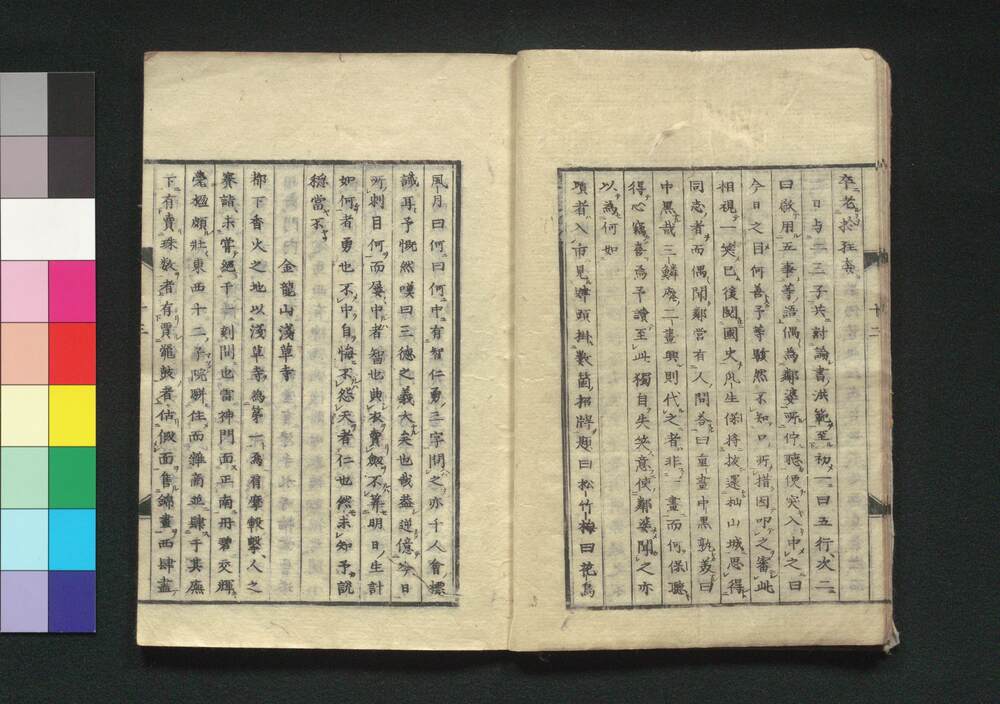 卒老於狂哉
一日与二三子共討論書洪範至初一曰五行次二
曰敬用五事等語偶為鄰婆所佇聽便突入中之曰
今日之目何善予等駭然不知口所措因叩之審此
相視一笑已後閱國史凡生保持披還山城思得
同志者而偶聞鄰嘗有人問答曰重畫中黑孰羨曰
中黑哉三鱗廢二畫興則代之者非一畫而何保聽
得心竊喜為予讀至此獨自失笑意使鄰婆聞之亦
以為何如
頃者入市見肆頭掛數箇招牌題曰松竹梅曰花鳥
十二
風月曰何曰何中有智仁勇三字問之亦千人會標
識耳予慨然嘆曰三德之義大矣也哉蓋逆億今日
所刺目何而屢中者智也典衣賣劍不葬明日生計
如何者勇也不中自悔不怨天者仁也然未知予說
穩當不
金龍山淺草寺
都下香火之地以淺草寺為第一肩摩轂擊人之
賽詣未嘗絕于刻間也雷神門面正南丹碧交輝
甍楹頗壯東西十二子院駢住而雜商並肆于其廡
下有賣珠數者有買龍鼓者估假面售錦畫西肆盡
十三